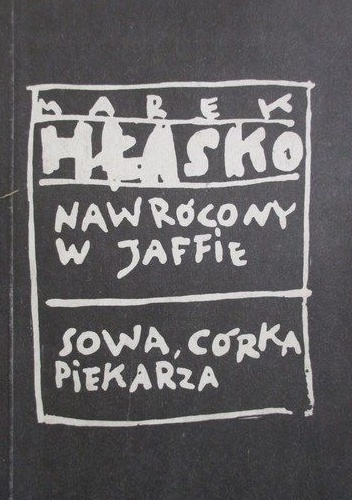 MAREK
HŁASKO
NAWRÓCONY
W JAFFIE
SOWA, CÓRKA
PIEKARZA